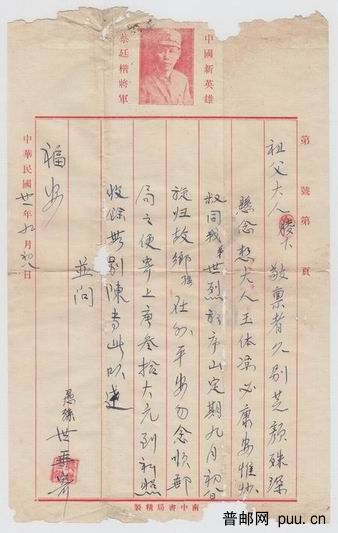 中國新英雄
蔡廷楷將軍
第 號 第 頁
祖父大人膝下 敬稟者久別芝顏殊深
懸念想大人玉体定必康安惟
叔同我弟世烈於 山定期九月初
旋归故鄉 在外平安勿念順郵
局之便寄上 叁拾大元到祈照
收餘無别陳專此叩達
並问
福安
愚孫世華寄
中華民國廿一年九月初 日
南中書局精製
普邮网 puu.cn